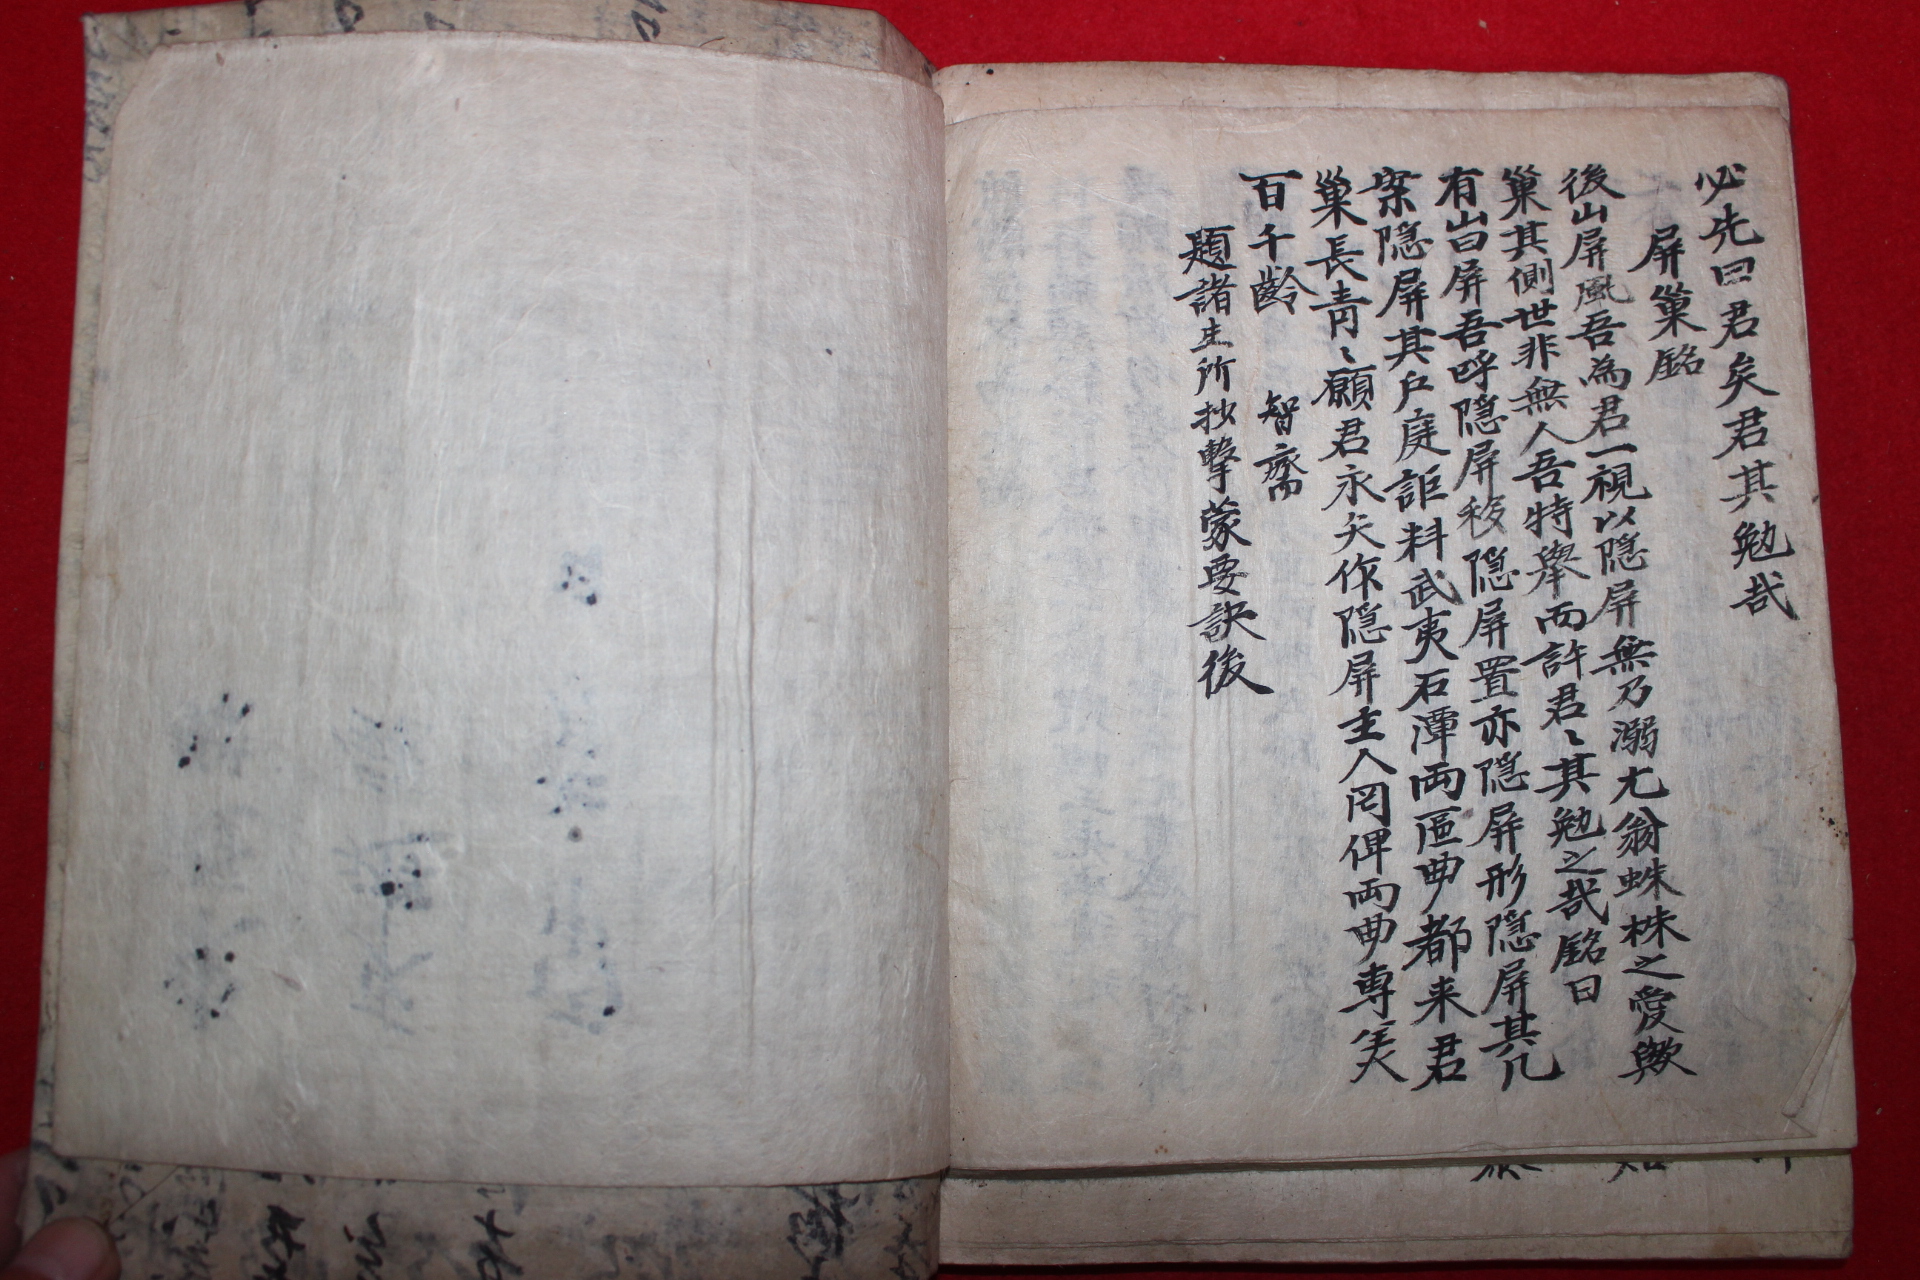 必先曰君矣君其勉哉
屏巢銘
後山屏風吾為君一視以隐屏無乃溺尤翁蛛株之愛歟
巢其側世非無人吾特舉而許君〻其勉之哉銘曰
有山曰屏吾呼隐屏移隐屏置亦隐屏形隐屏其几
案隐屏其戶庭詎料武夷石潭両區曲都来君
巢長青〻願君永矢作隐屏主人罔俾両曲専羙
百千齡
智齋
題諸生所抄擊蒙要訣後